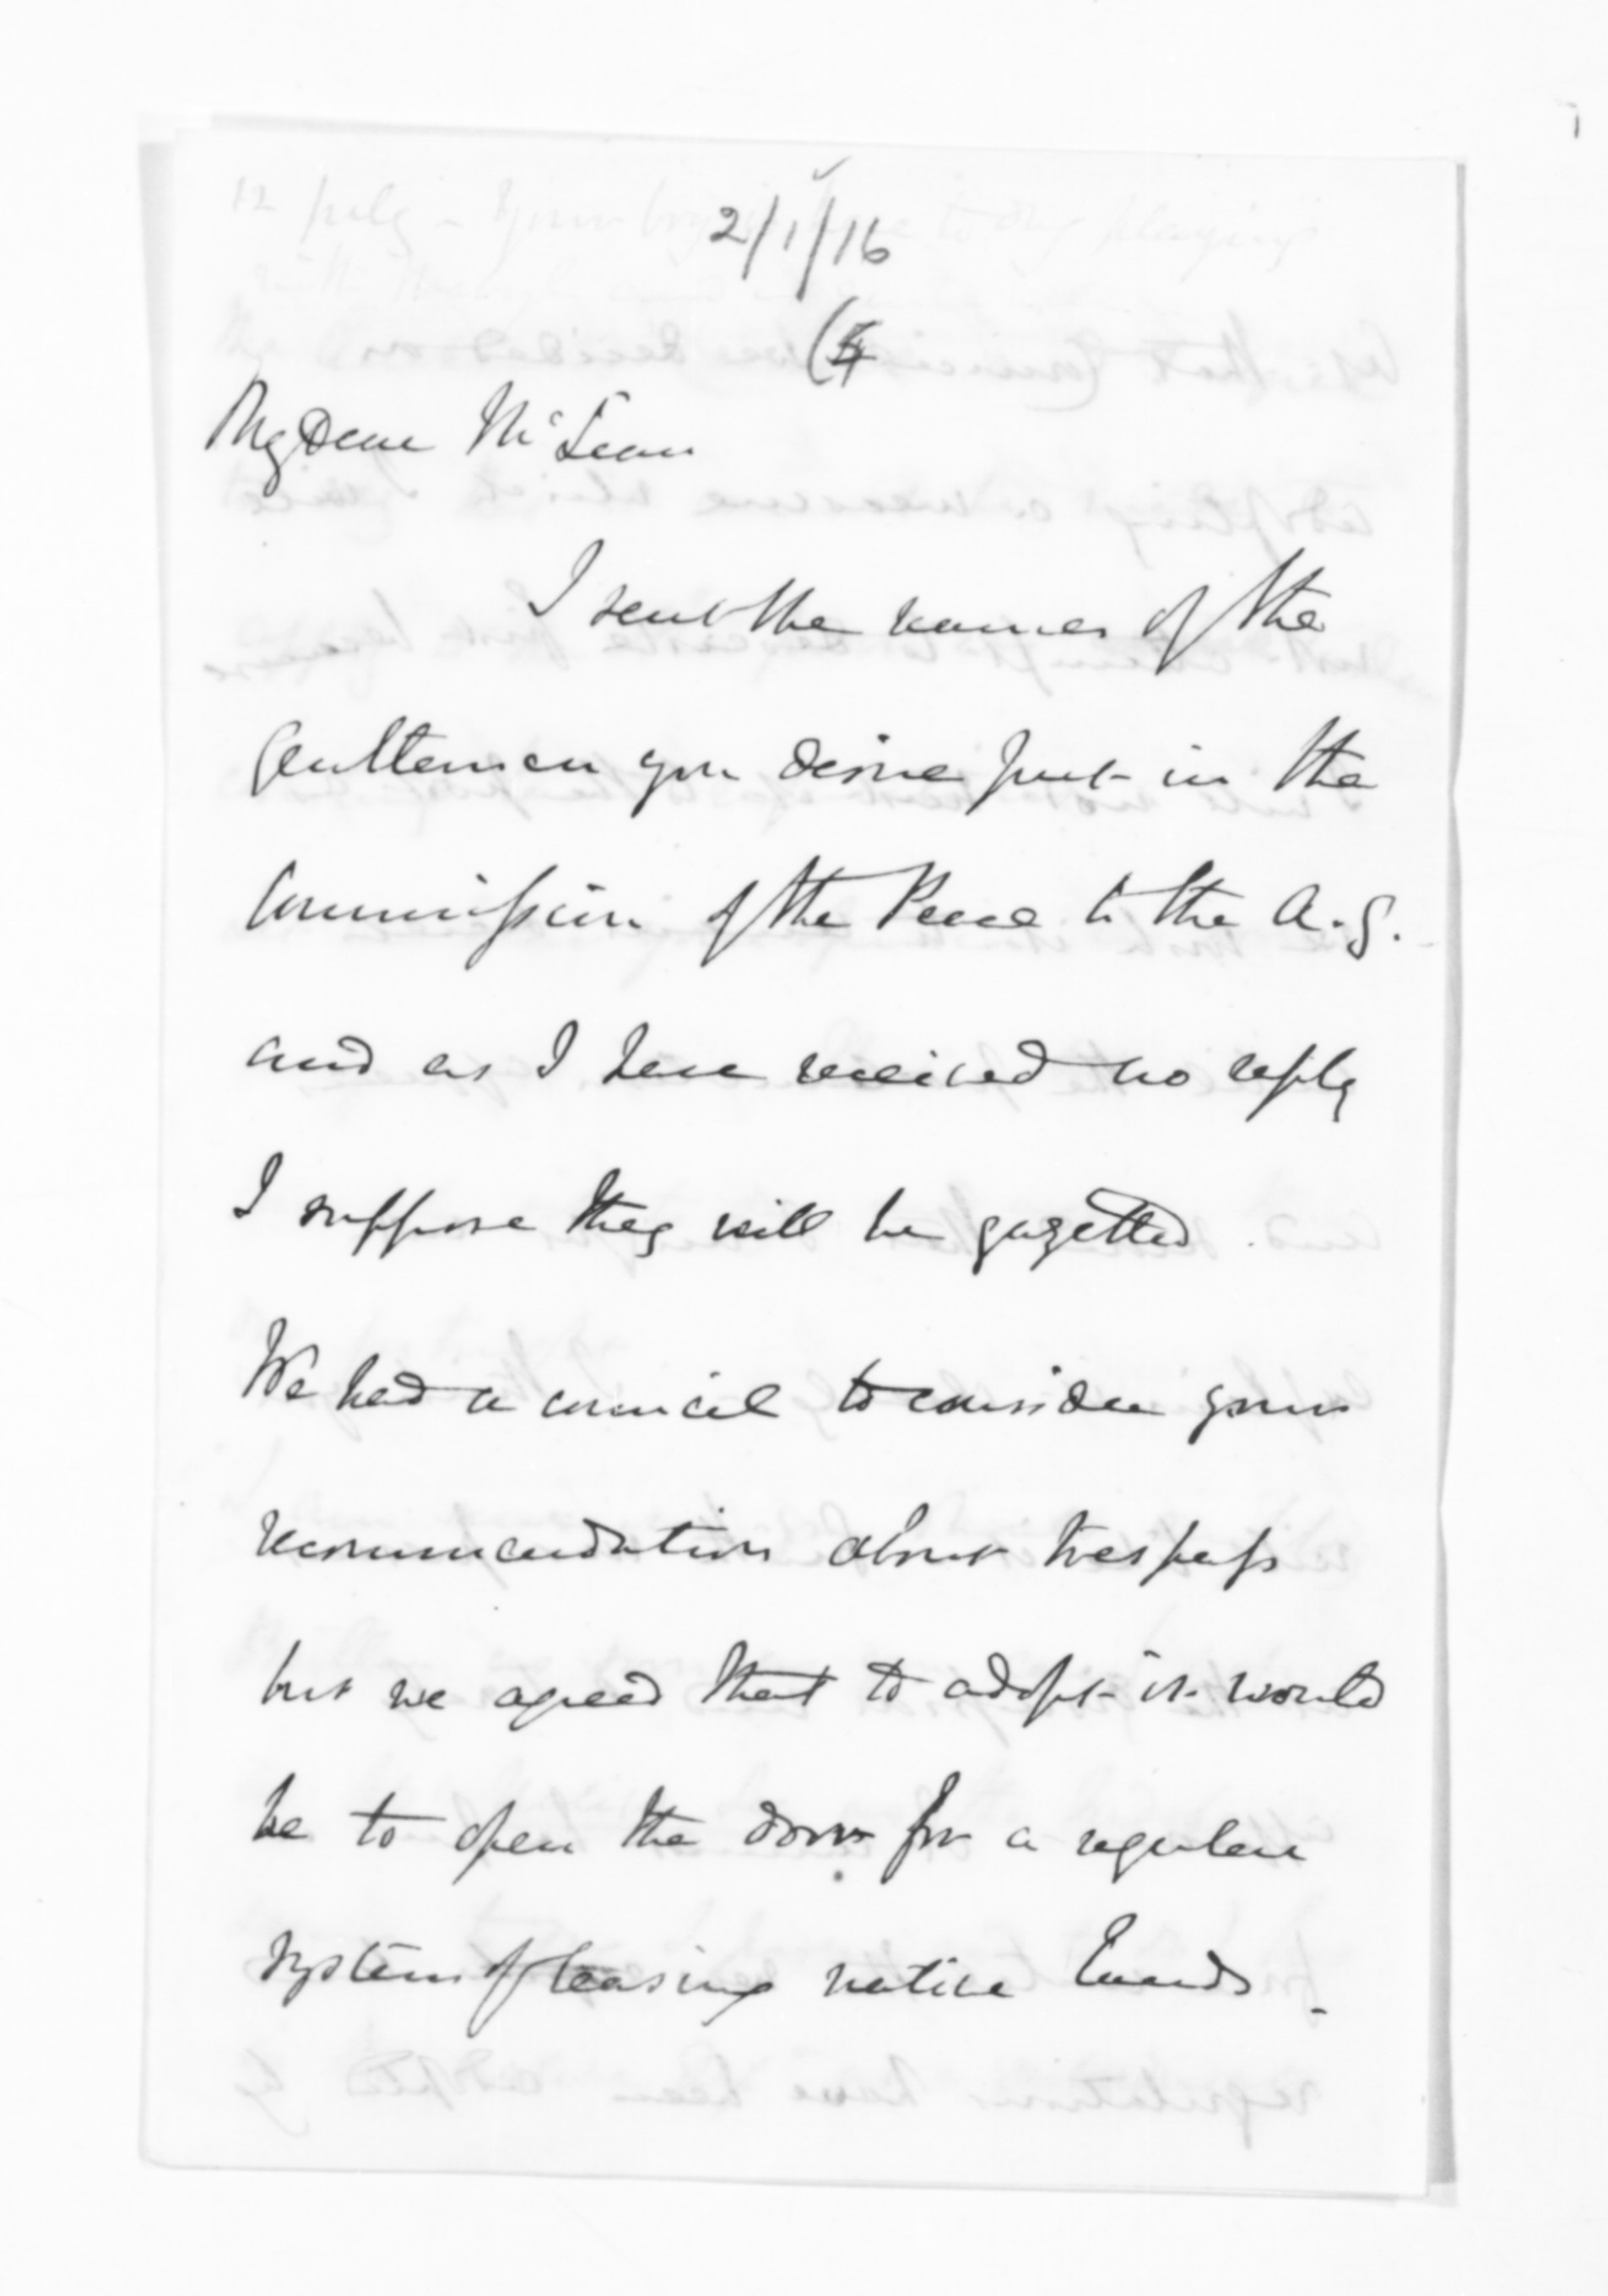 2/1/16
My Dear McLean
I sent the names of the
Gentlemen you desire put in the
Commission of the Peace to the A.G.
and as I have received no reply
I suppose they will be gazetted.
We had a council to consider your
recommendation about trespass
but we agreed that to adopt it would
be to open the door for a regular
system of leasing native lands.